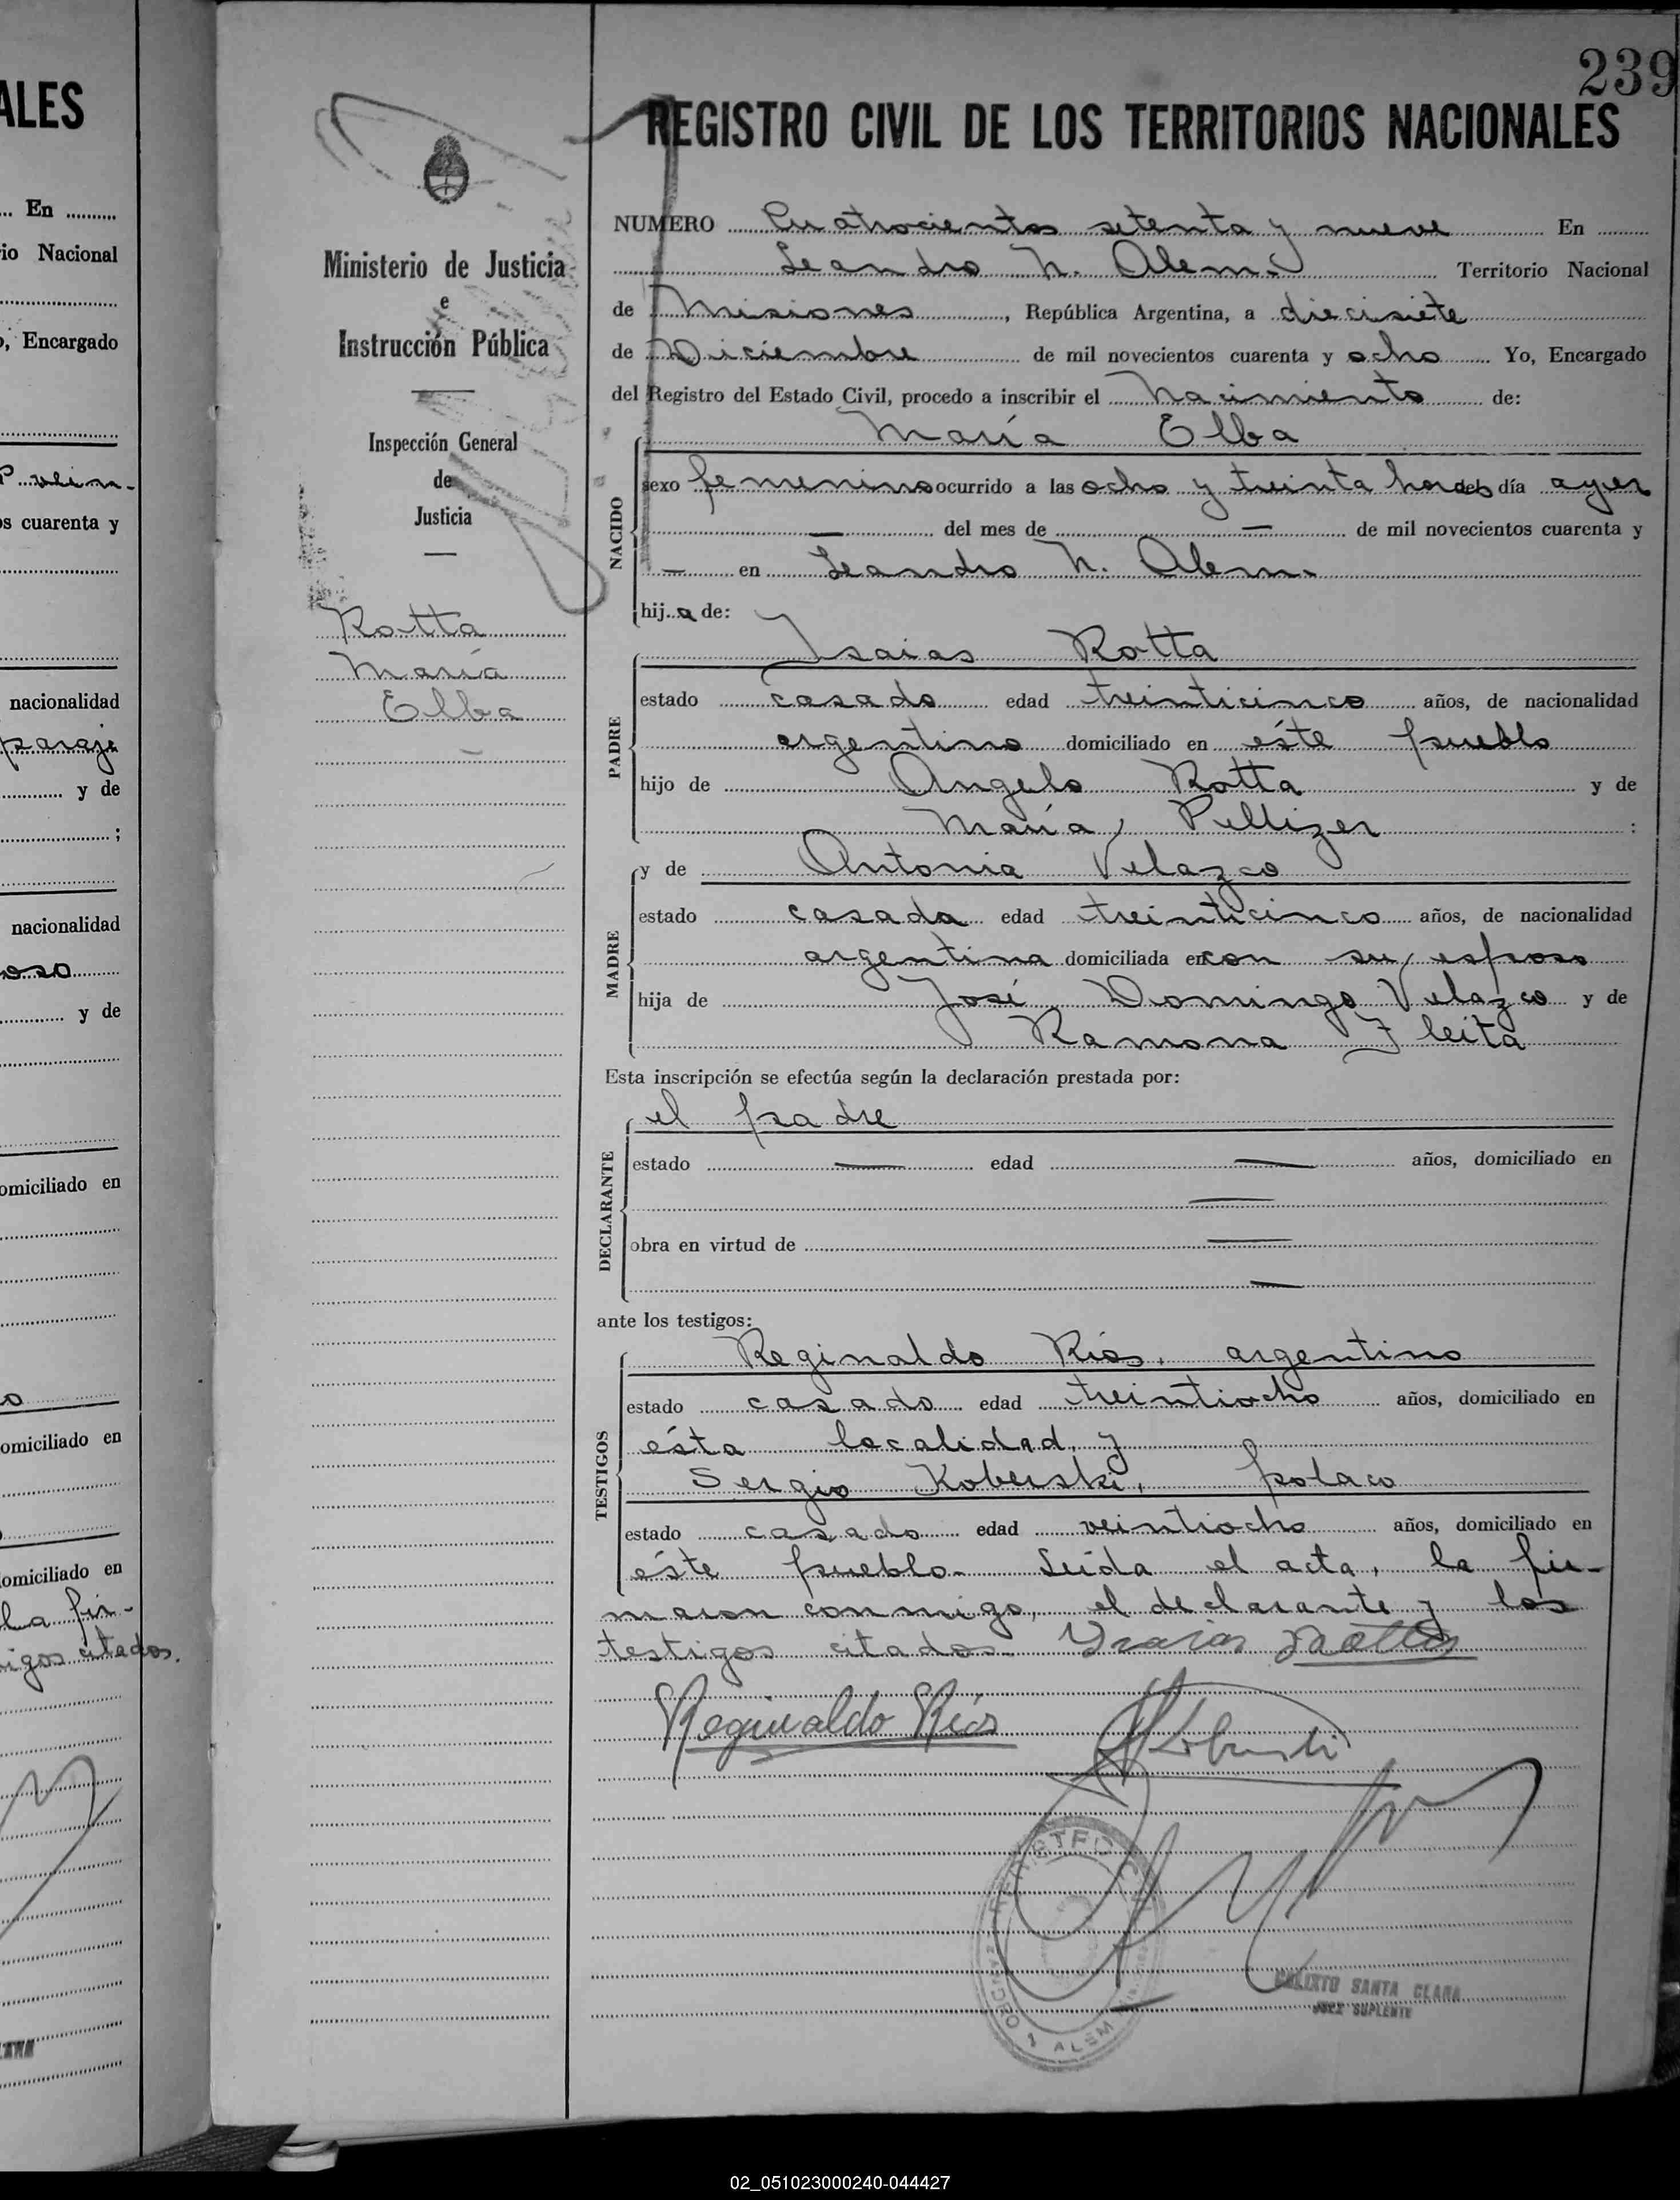 ALES
... En ..........
io Nacional
o, Encargado
s cuarenta y
nacionalidad
paraje
............ y de
;
nacionalidad
oso
............ y de
omiciliado en
o
omiciliado en
omiciliado en
La fir-
igos citados.
239
REGISTRO CIVIL DE LOS TERRITORIOS NACIONALES
Ministerio de Justicia
e
Instrucción Pública
Inspección General
de
Justicia
Rotta
María
Elba
NUMERO Cuatrocientos setenta y nueve En
Leandro N. Alem. Territorio Nacional
de Misiones, República Argentina, a diecisiete
de Diciembre de mil novecientos cuarenta y ocho Yo, Encargado
del Registro del Estado Civil, procedo a inscribir el nacimiento de:
María Elba
NACIDO
sexo femenino ocurrido a las ocho y treinta horas del día ayer
— del mes de — de mil novecientos cuarenta y
— en Leandro N. Alem.
hija de:
Isaias Rotta
PADRE
estado casado edad treinticinco años, de nacionalidad
argentino domiciliado en éste pueblo
hijo de Angelo Rotta y de
María Pellizer :
y de Antonia Velazco
MADRE
estado casada edad treinticinco años, de nacionalidad
argentina domiciliada en con su esposo
hija de José Domingo Velazco y de
Ramona Fleita
Esta inscripción se efectúa según la declaración prestada por:
el padre
DECLARANTE
estado — edad — años, domiciliado en
—
obra en virtud de —
—
ante los testigos:
Reginaldo Ríos, argentino
TESTIGOS
estado casado edad treintiocho años, domiciliado en
ésta localidad, y
Sergio Koberski, polaco
estado casado edad veintiocho años, domiciliado en
éste pueblo.- Leída el acta, la fir-
maron conmigo, el declarante y los
testigos citados. Isaias Rotta
Reginaldo Ríos
REGISTRO CIVIL
ALEM
CALIXTO SANTA CLARA
JUEZ SUPLENTE
02_051023000240-044427